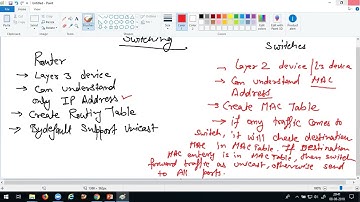 Untitled - Paint
Switching
Router
→ Layer 3 device
→ Can understand
only IP Address ✓
→ Create Routing Table
→ Bydefault Support Unicast
Switches
→ Layer 2 device / L3 device
→ Can understand MAC
Address
→ Create MAC Table
→ if any traffic comes to
switch, it will check destination
MAC in MAC Table. If Destination
MAC entery is in MAC Table, then switch
forward traffic as unicast, otherwise send
to All ports.